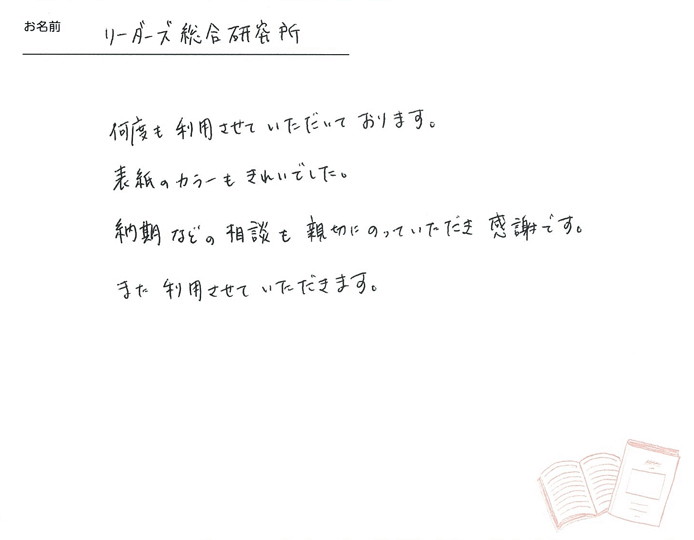 お名前 リーダーズ総合研究所
何度も利用させていただいております。
表紙のカラーもきれいでした。
納期などの相談も親切にのっていただき感謝です。
また利用させていただきます。